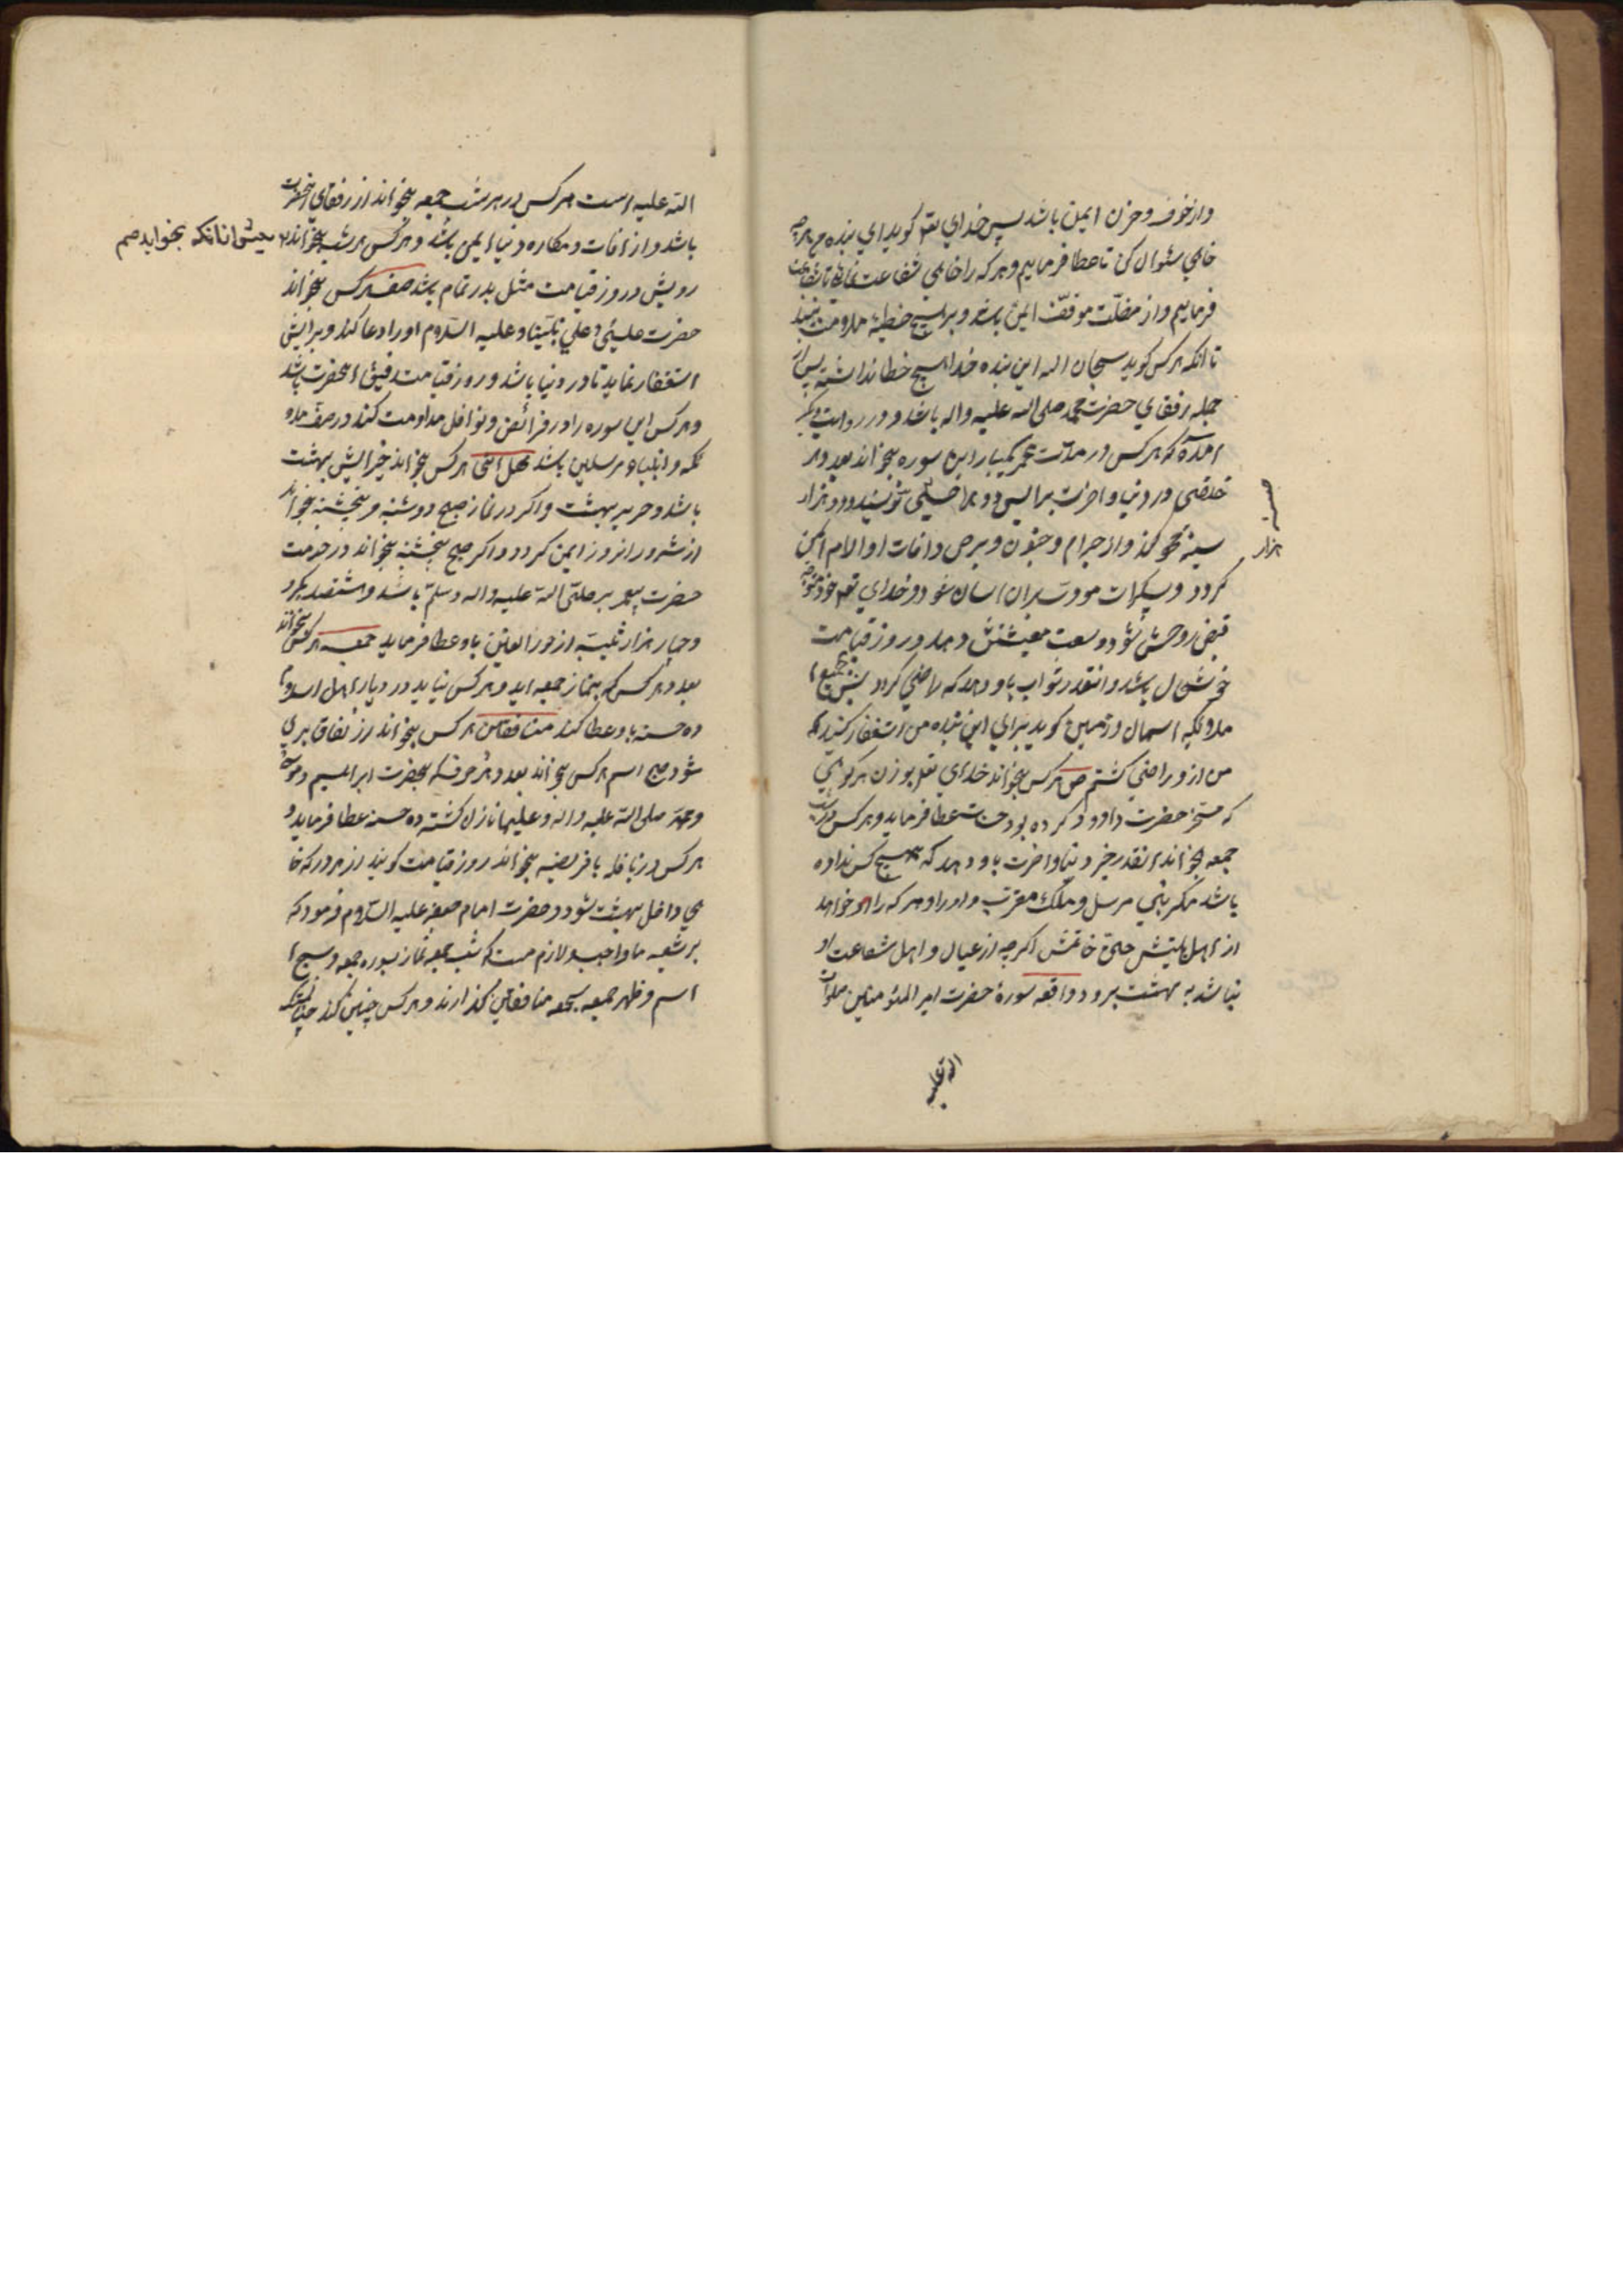 واز خوف و حزن ایمن باشد پس خدای تعم کوید ای بنده من هرچه
خاهی سئوال کن تا عطا فرمایم و هر که را خاهی شفاعت نمای تا شفاعت
فرمایم واز مضلت موقف ایمن باشد و بر هیچ خطیئه ملامت نبیند
تا انکه هر کس کوید سبحان الله این بنده خدا هیچ خطا نداشته پس از
جمله رفقای حضرت محمد صلی الله علیه واله باشد و در روایت دیکر
امده که هر کس در مدت عمر یکبار این سوره بخواند بعدد هر
خلقی در دنیا و اخرت برایش دو هزار حسنه نویسند و دو هزار
سیئه محو کند واز جرام و جنون و برص و افات او الام ایمن
کردد و سکرات موت بر ان اسان شود و خدای تعم خود متوجه
قبض روحش شود و وسعت معیشتش دهد و در روز قیامت
خوشحال باشد وانقدر ثواب باو دهد که راضی کردد پس بجمیع
ملائکه اسمان و زمین کوید برای این بنده من استغفار کنید که
من ازو راضی کشتم ص هر کس بخواند خدای تعم بوزن هر کوهی
که مسخر حضرت داوود کرده بود حسنات عطا فرماید و هر کس در شب
جمعه بخواند انقدر خیر دنیا و اخرت باو دهد که هیچ کس نداده
باشد مکر نبی مرسل و ملک مقرب و او را و هر که را او خواهد
از اهل بیتش حتی خادمش اکرچه از عیال و اهل شفاعت او
نباشد به بهشت برود واقعه سورۀ حضرت امیر المئومنین صلوات
الله علیه
هزار
الله علیه است هر کس در هر شب جمعه بخواند از رفقای انحضرت
باشد و از افات و مکاره دنیا ایمن باشد و هر کس هر شب بخواند
پیش از انکه بخوابد صم
رویش در روز قیامت مثل بدر تمام باشد صف هر کس بخواند
حضرت عیسی علی نبینا و علیه السلام او را دعا کند و برایش
استغفار نماید تا در دنیا باشد و روز قیامت رفیق انحضرت باشد
و هر کس این سوره را در فرائض و نوافل مداومت کند در صف ملا
ئکه و انبیاء مرسلین باشد هل اتی هر کس بخواند جزایش بهشت
باشد و حریر بهشت و اکر در نماز صبح دوشنبه و پنجشنبه بخواند
از شر و ر انروز ایمن کردد و اکر صبح پنجشنبه بخواند در خدمت
حضرت پیغمبر صلی الله علیه واله وسلم باشد و هشتصد بکر و
و چهار هزار ثیبه از حور العین باو عطا فرماید جمعه هر کس بخواند
بعدد هر کس که بنماز جمعه اید و هر کس نیاید در دیار اهل اسلام
ده حسنه باو عطا کند منافقین هر کس بخواند از نفاق بری
شود سبح اسم هر کس بخواند بعدد هر حرف که بحضرت ابراهیم و موسی
و محمد صلی الله علیه واله و علیهما نازل کشته ده حسنه عطا فرماید و
هر کس در نافله یا فریضه بخواند روز قیامت کویند از هر در که خا
هی داخل بهشت شو و حضرت امام جعفر علیه السلام فرمود که
بر شیعه ما واجب و لازم است که شب جمعه نماز بسوره جمعه و سبح
اسم و ظهر جمعه بجمعه منافقین کذارند و هر کس چنین کند چنانست که